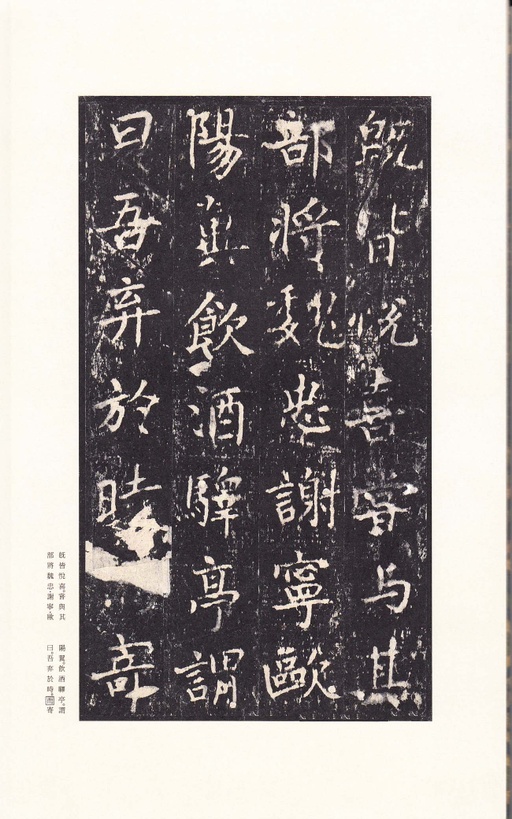 既皆悅喜甞与其
部將魏忠謝寧歐
陽翼飲酒驛亭謂
曰吾弃於時寄
既皆悅喜。甞與其
部將魏忠・謝寧・歐
陽翼。飲酒驛亭。謂
曰。吾弃於時而寄